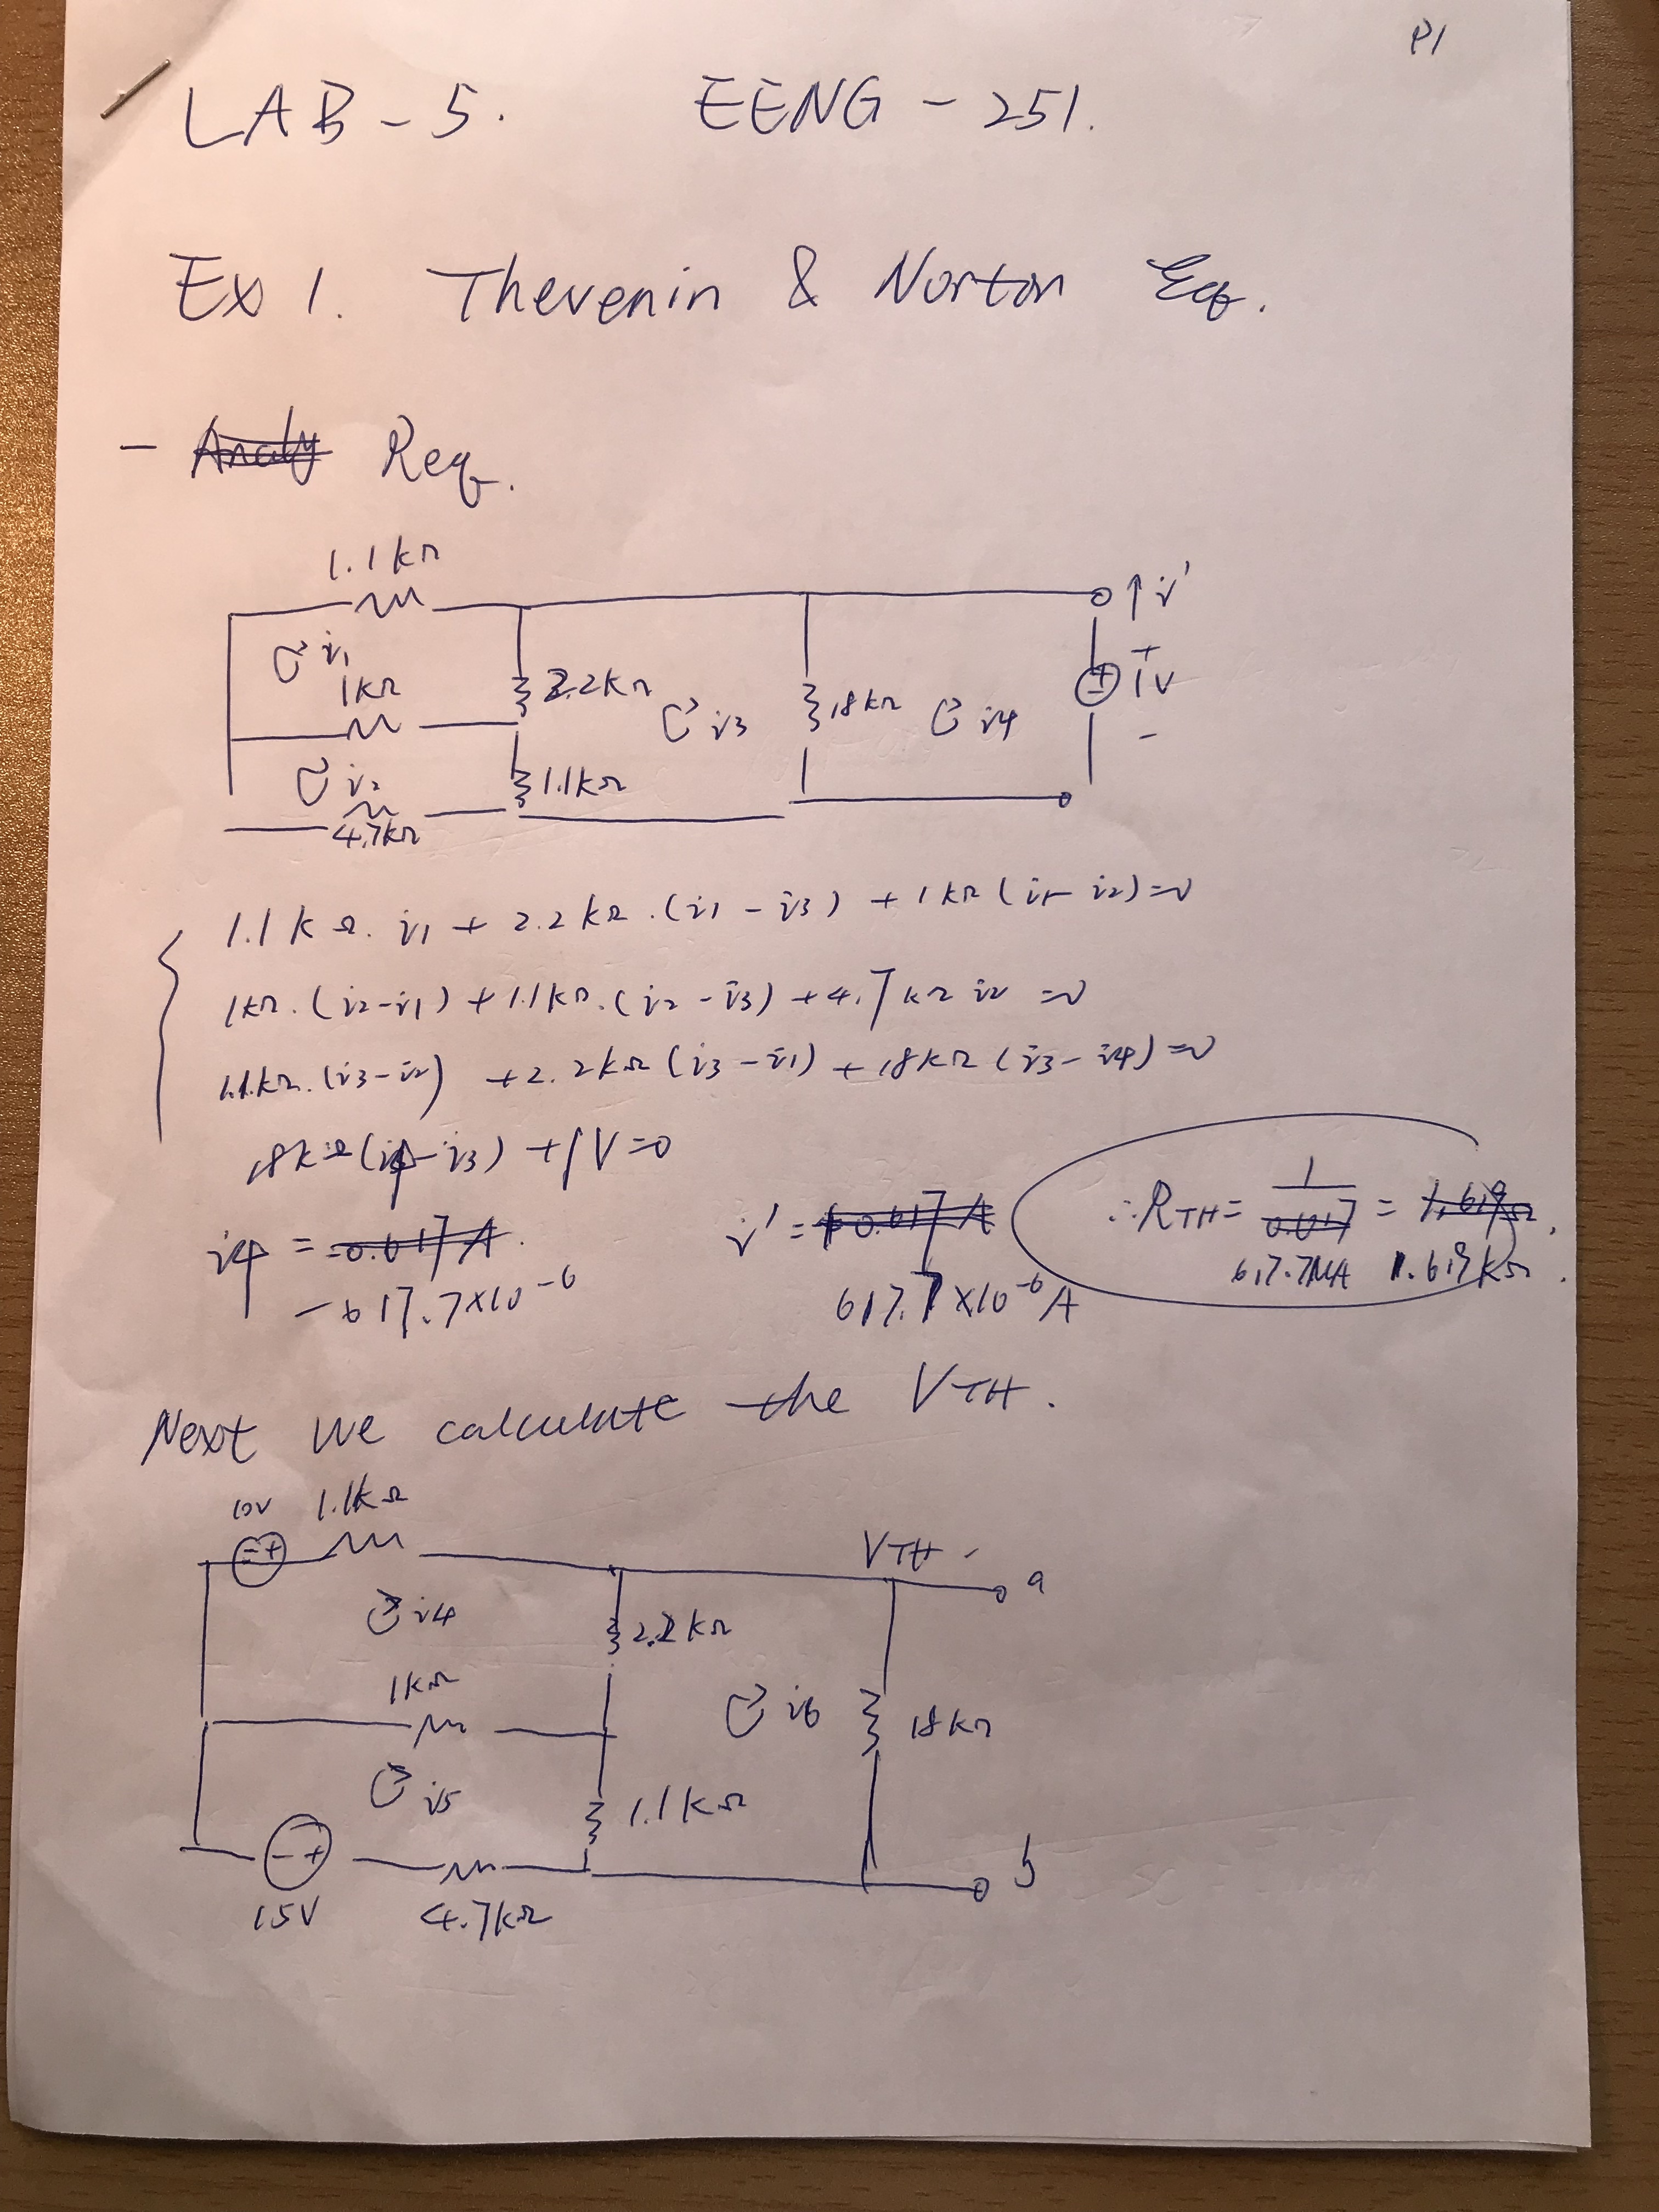 P1
LAB-5. EENG-251.
Ex 1. Thevenin & Norton Eq.
- Analy Req.
1.1kΩ
i'
i1
1kΩ
2.2kΩ
i3
18kΩ
i4
+
1V
-
i2
1.1kΩ
4.7kΩ
1.1kΩ. i1 + 2.2kΩ.(i1 - i3) + 1kΩ(i1- i2)=0
1kΩ.(i2-i1)+1.1kΩ.(i2-i3)+4.7kΩ i2=0
1.1kΩ.(i3-i2) +2.2kΩ(i3-i1)+18kΩ(i3-i4)=0
18kΩ(i4-i3)+1V=0
i4 = -0.617A. i' = 0.617A ∴RTH= 1/0.617 = 1.619Ω.
-617.7×10-6 617.7×10-6A 617.7MA 1.619kΩ.
Next we calculate the VTH.
10V 1.1kΩ
-+
VTH
a
i4
2.2kΩ
1kΩ
i6
18kΩ
i5
1.1kΩ
-+
b
15V
4.7kΩ